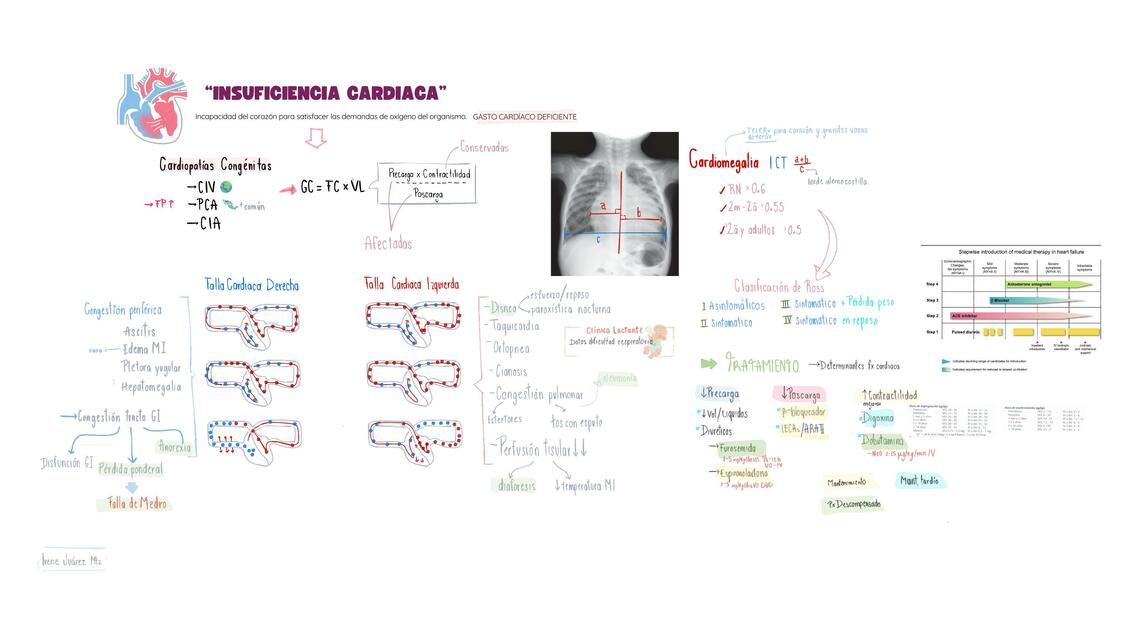 "INSUFICIENCIA CARDIACA"
Incapacidad del corazón para satisfacer las demandas de oxígeno del organismo. GASTO CARDÍACO DEFICIENTE
Cardiopatías Congénitas
→CIV
→FP↑ →PCA +común
→CIA
→ GC = FC x VL
Precarga x Contractilidad
Poscarga
Conservadas
Afectadas
a
b
c
Cardiomegalia ICT a+b
c
TeleRx para corazón y grandes vasos
Borde interno costilla.
✓ RN >0.6
✓ 2m-2a >0.55
✓ 2a y adultos >0.5
Clasificación de Ross
I Asintomáticos III Sintomatico + Pérdida peso
II Sintomatico IV Sintomatico en reposo
Falla Cardiaca Derecha
Congestión periférica
Ascitis
raro Edema MI
Pletora yugular
Hepatomegalia
→Congestión tracto GI
Anorexia
Disfunción GI
Pérdida ponderal
Falla de Medro
Falla Cardiaca Izquierda
- Disnea
esfuerzo/reposo
paroxística nocturna
- Taquicardia
- Ortopnea
- Cianosis
- Congestión pulmonar
Neumonía
Estertores
tos con esputo
- Perfusión tisular↓↓
diaforesis
↓temperatura MI
Clínica Lactante
Datos dificultad respiratoria
TRATAMIENTO →Determinantes fx cardiaca
↓Precarga
*↓Vol/Líquidos
*Diuréticos
→Furosemida
→Espironolactona
↓Poscarga
*β-bloqueador
*IECAs/ARAII
↑Contractilidad
*Digoxina
*Dobutamina
Mantenimiento
Mant tardío
Px Descompensado
Stepwise introduction of medical therapy in heart failure
Step 4 Aldosterone antagonist
Step 3 β-Blocker
Step 2 ACE inhibitor
Step 1 Pulsed diuretic
Irene Juárez Mtz